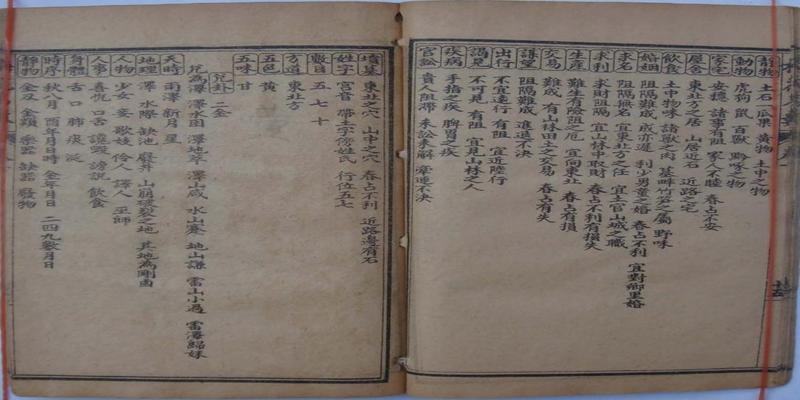 靜物 土石 瓜果 黃物 土中之物
動物 虎 狗 鼠 百獸 黔喙之物
家宅 安穩 諸事有阻 家人不睦 春占不安
屋舍 東北方之居 山居近石 近路之宅
飲食 土中物味 諸獸之肉 墓畔竹笋之屬 野味
婚姻 阻隔難成 成亦遲 利少男童之婚 春占不利 宜對鄉里婚
求名 阻隔無名 宜東北方之任 宜土官山城之職
求利 求財阻隔 宜山林中取財 春占不利有損失
生產 難生有險阻之厄 宜向東北 春占有損
交易 難成 有山林田土之交易 春占有失
謀望 阻隔難成 進退不決
出行 不宜遠行 有阻 宜近陸行
謁見 不可見 有阻 宜見山林之人
疾病 手指之疾 脾胃之疾
官訟 貴人阻滯 未訟未解 牽連不決
墳墓 東北之穴 山中之穴 春占不利 近路邊有石
姓字 宮音 帶土字傍姓氏 行位五七
數目 五 七 十
方道 東北方
五色 黃
五味 甘
兌卦 二金
兌為澤 澤水困 澤地萃 澤山咸 水山蹇 地山謙 雷山小過 雷澤歸妹
天時 雨澤 新月 星
地理 澤 水際 缺池 廢井 山崩破裂之地 其地為剛鹵
人物 少女 妾 歌妓 伶人 譯人 巫師
人事 喜悅 口舌 讒毀 謗說 飲食
身體 舌 口 肺 痰 涎
時序 秋八月 酉年月日時 金年月日 二四九數月日
靜物 金刃 金類 樂器 缺器 廢物